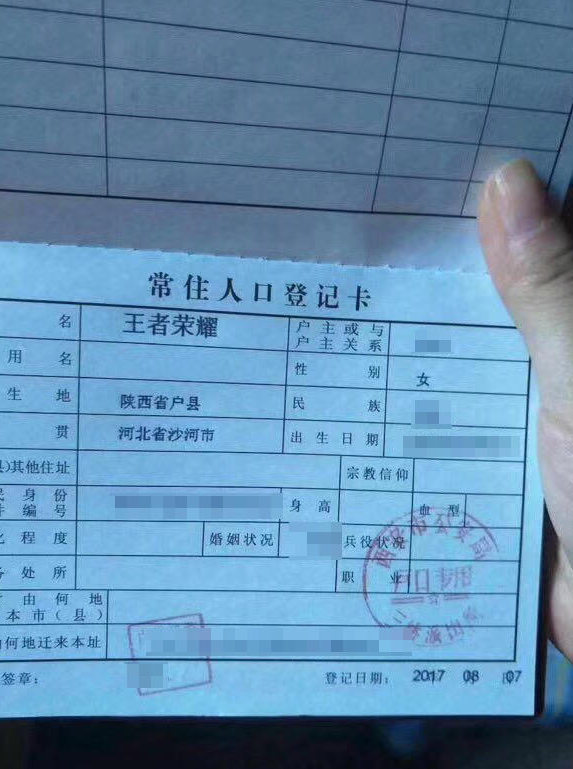 常住人口登记卡
名 王者荣耀 户主或与户主关系
用名 性别 女
生地 陕西省户县 民族
贯 河北省沙河市 出生日期
)其他住址 宗教信仰
身份 身高 血型
编号
程度 婚姻状况 兵役状况
处所 职业
由何地
本市(县)
何地迁来本址
签章: 登记日期: 2017 08 07